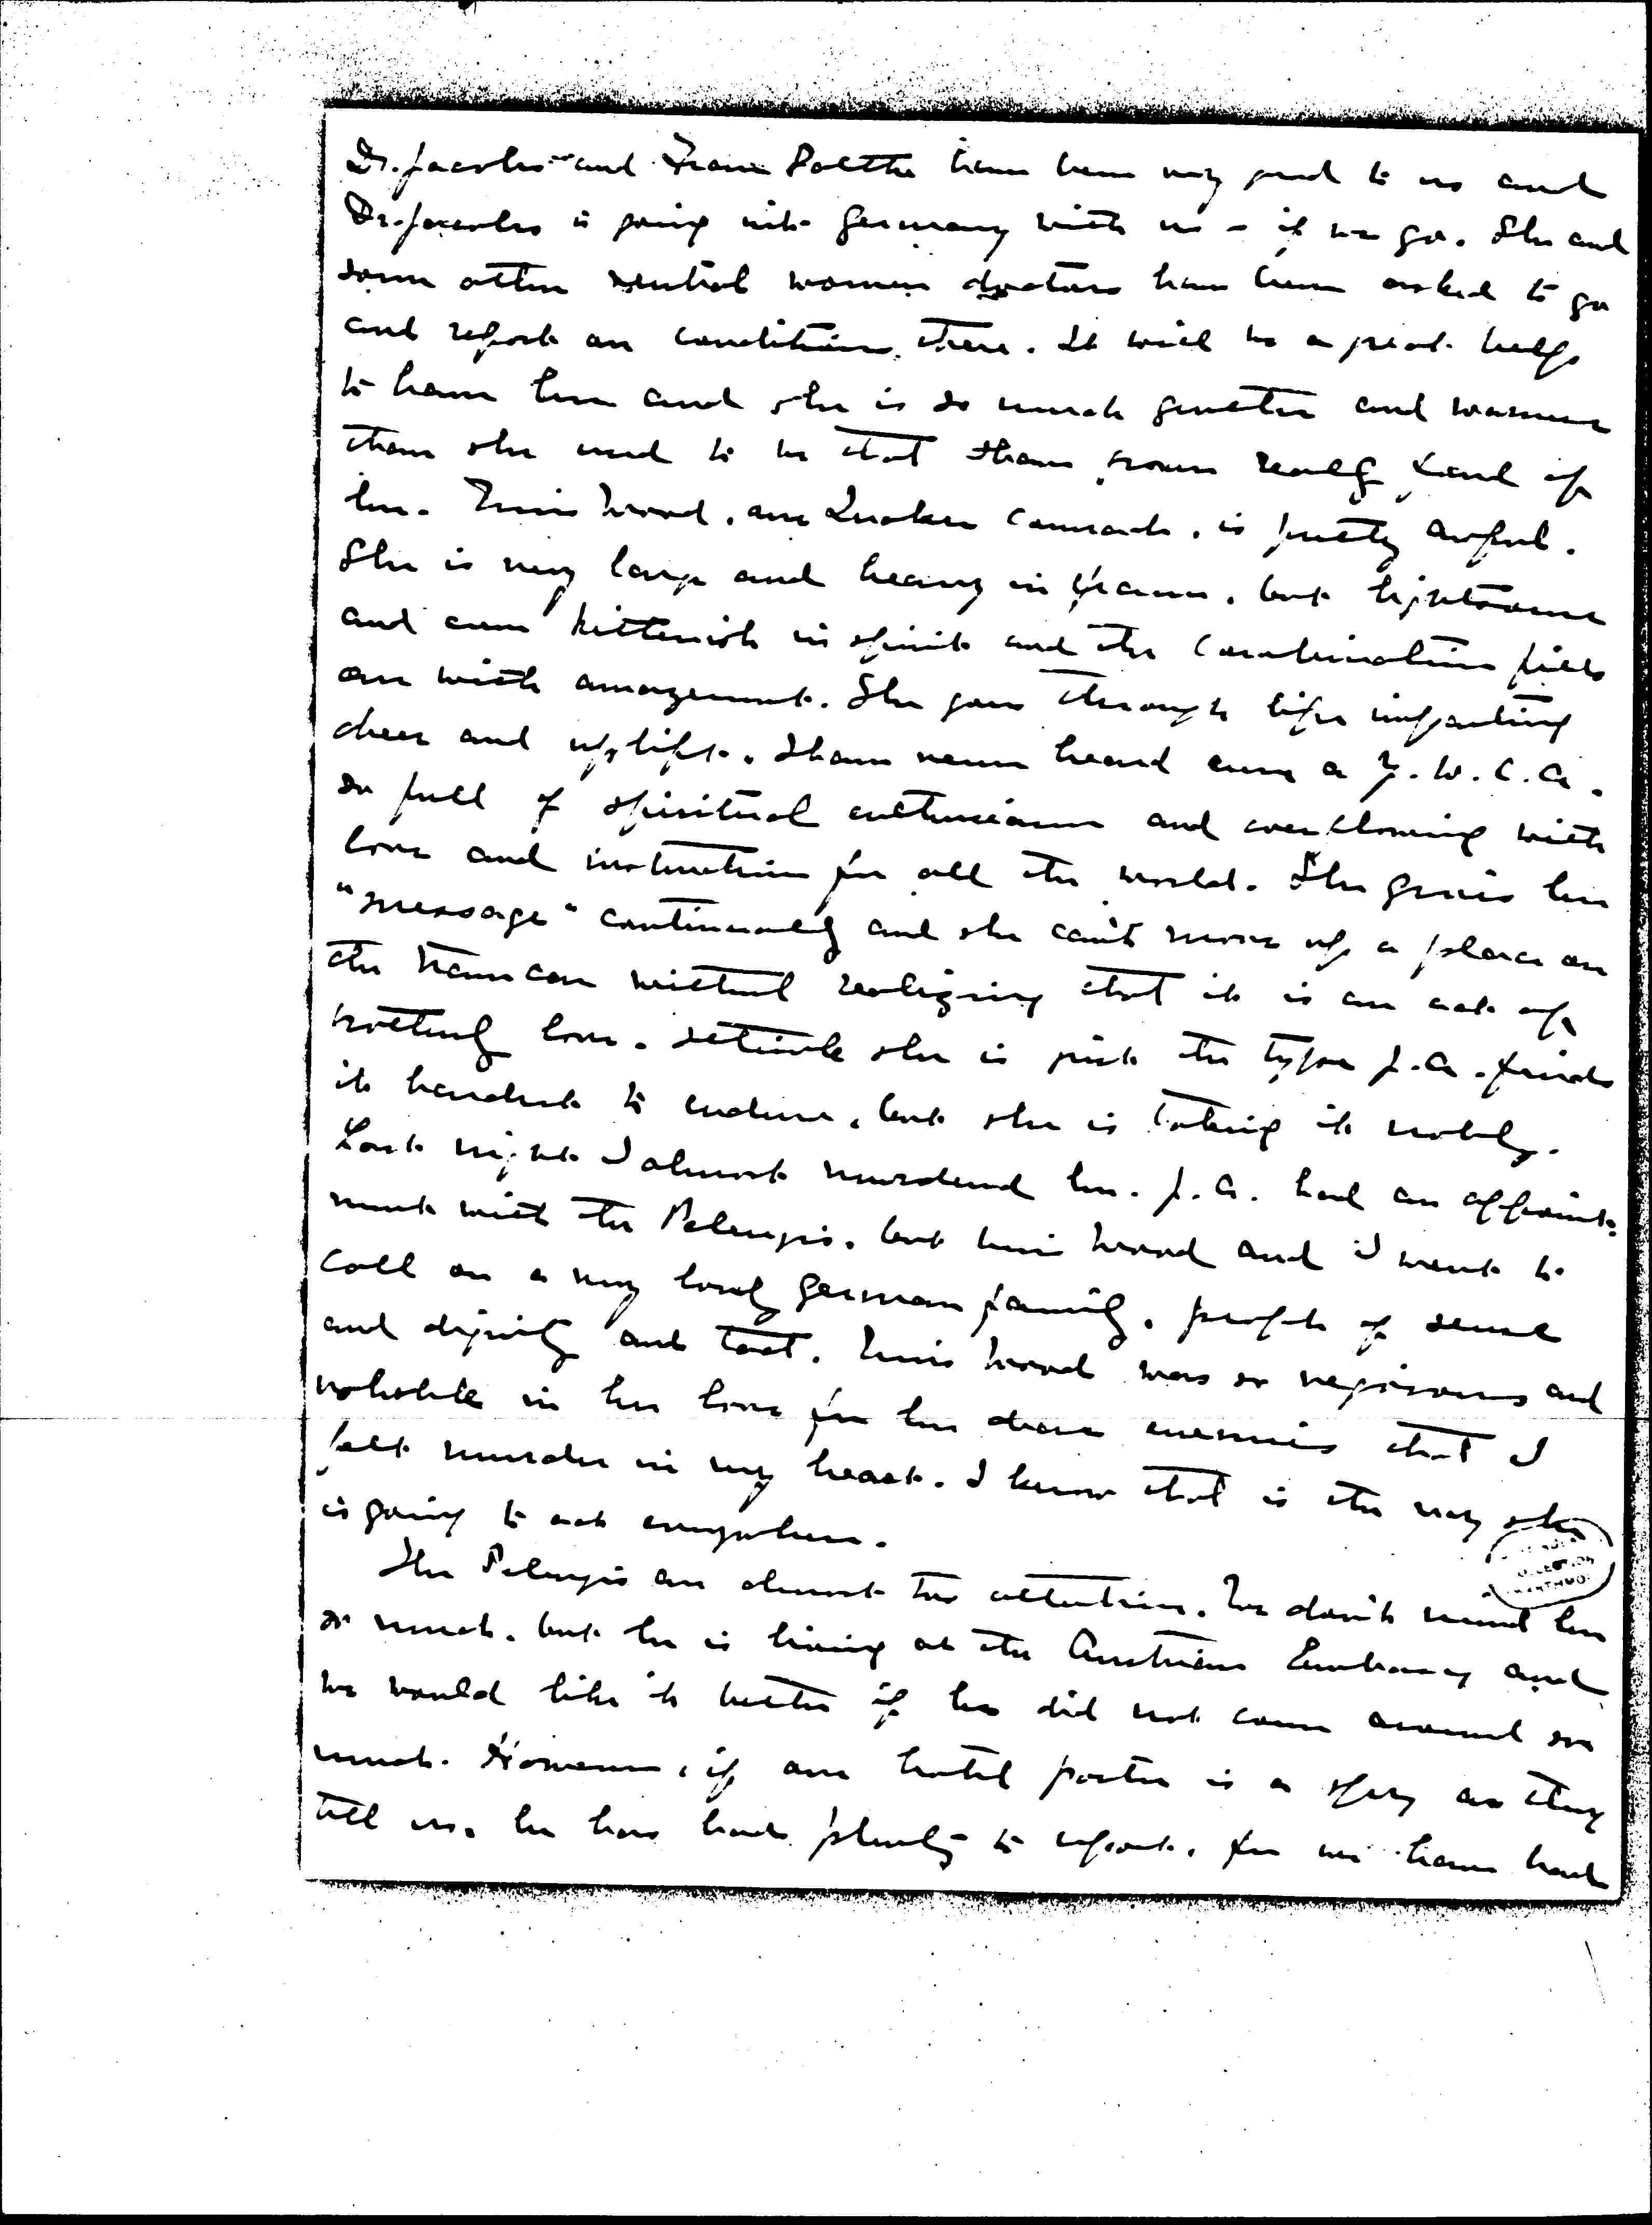 Dr. Jacobs and Frau Palthe have been very good to us and
Dr. Jacobs is going into Germany with us - if we go. She and
some other neutral women doctors have been asked to go
and report on conditions there. It will be a great help
to have her and she is so much gentler and warmer
than she used to be that I have grown really fond of
her. Miss Wood, our Quaker comrade, is pretty awful.
She is very large and heavy in frame, but lightsome
and even kittenish in spirit and the combination fills
one with amazement. She goes through life imparting
cheer and uplift. I have never heard even a Y.W.C.A.
so full of spiritual enthusiasm and overflowing with
love and instruction for all the world. She gives her
"message" continually and she can't move up a place on
the tram car without realizing that it is an act of
brotherly love. I think she is just the type J.A. finds
it hardest to endure, but she is taking it nobly.
Last night I almost murdered her. J.A. had an appoint-
ment with the Pelenyis, but Miss Wood and I went to
call on a very lovely German family, people of sense
and dignity and tact. Miss Wood was so vigorous and
voluble in her love for her dear enemies that I
felt murder in my heart. I know that is the way she
is going to act everywhere.
The Pelenyis are almost too attentive. We don't mind her
so much, but he is living at the Austrian Embassy and
we would like it better if he did not come around so
much. However, if our hotel porter is a spy as they
tell us, he has had plenty to report, for we have had